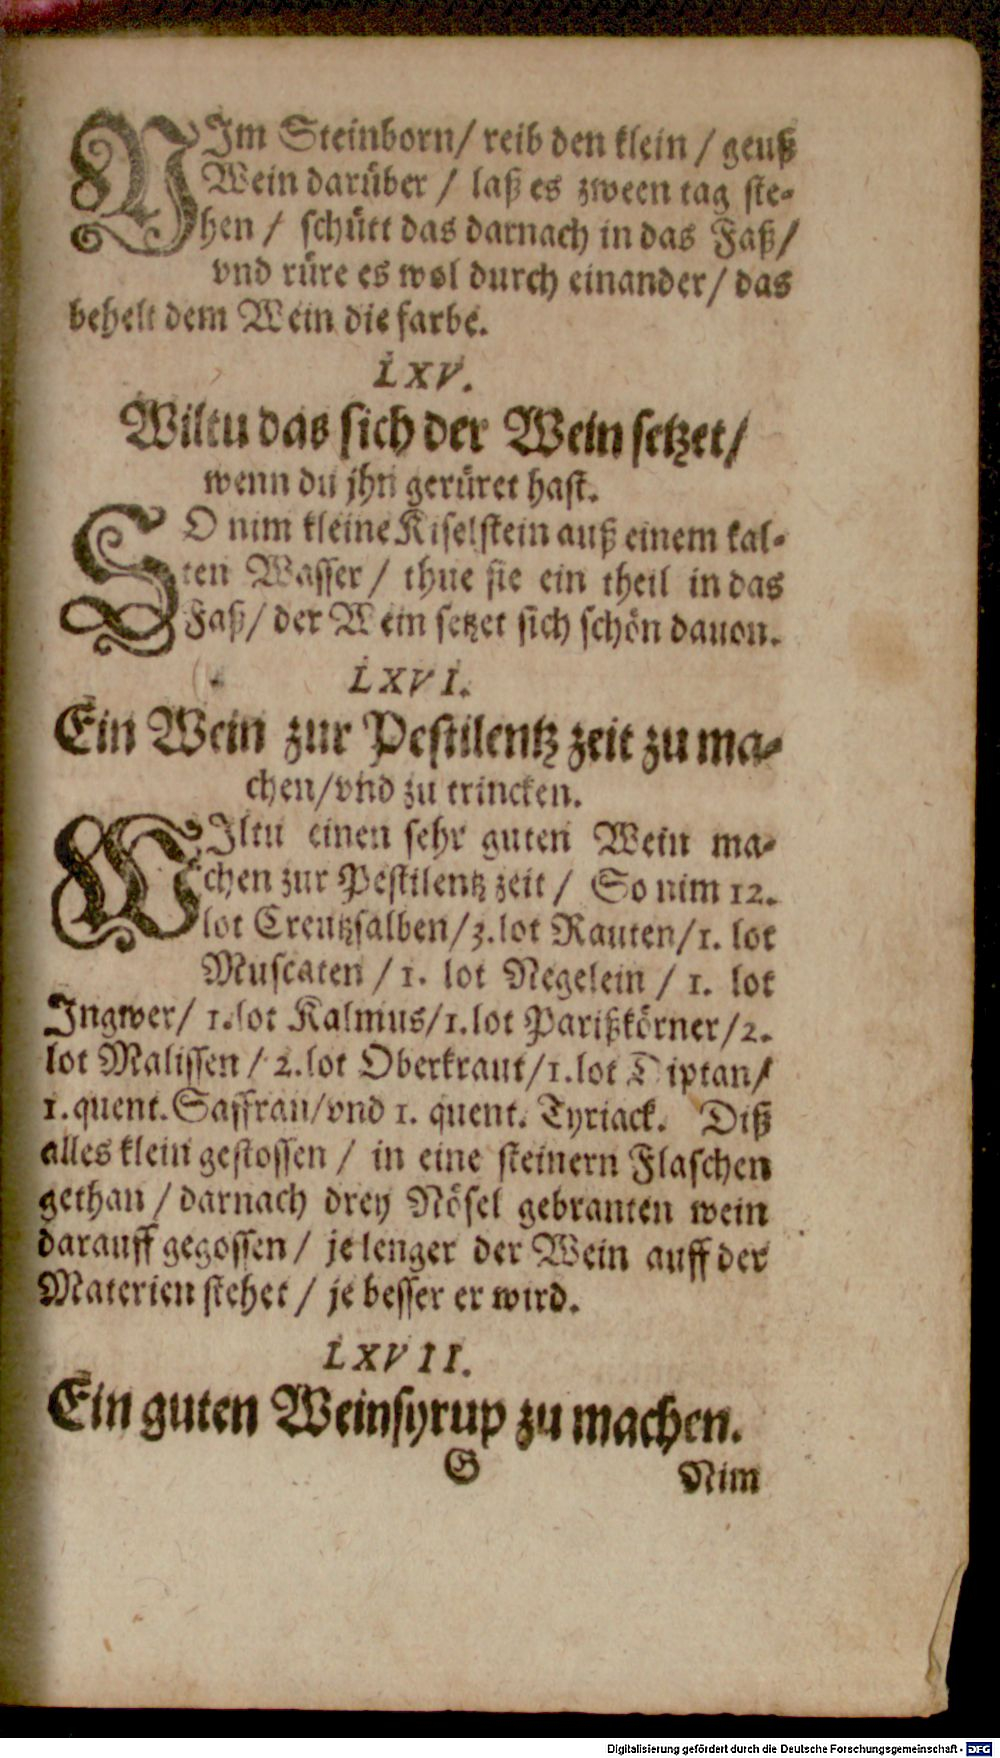 NIm Steinborn/ reib den klein / geuß
Wein darüber / laß es zween tag ste-
hen / schütt das darnach in das Faß/
vnd rüre es wol durch einander/ das
behelt dem Wein die farbe.
LXV.
Wiltu das sich der Wein setzet/
wenn du jhn gerüret hast.
SO nim kleine Kiselstein auß einem kal-
ten Wasser / thue sie ein theil in das
Faß/ der Wein setzet sich schön dauon.
LXVI.
Ein Wein zur Pestilentz zeit zu ma-
chen/vnd zu trincken.
WIltu einen sehr guten Wein ma-
chen zur Pestilentz zeit / So nim 12.
lot Creutzsalben/3.lot Rauten/1. lot
Muscaten / 1. lot Negelein / 1. lot
Ingwer/ 1.lot Kalmus/1.lot Parißkörner/2.
lot Malissen / 2.lot Oberkraut/1.lot Diptan/
1.quent.Saffran/vnd 1. quent. Tyriack. Diß
alles klein gestossen / in eine steinern Flaschen
gethan / darnach drey Nösel gebranten wein
darauff gegossen / je lenger der Wein auff der
Materien stehet / je besser er wird.
LXVII.
Ein guten Weinsyrup zu machen.
G Nim
Digitalisierung gefördert durch die Deutsche Forschungsgemeinschaft - DFG